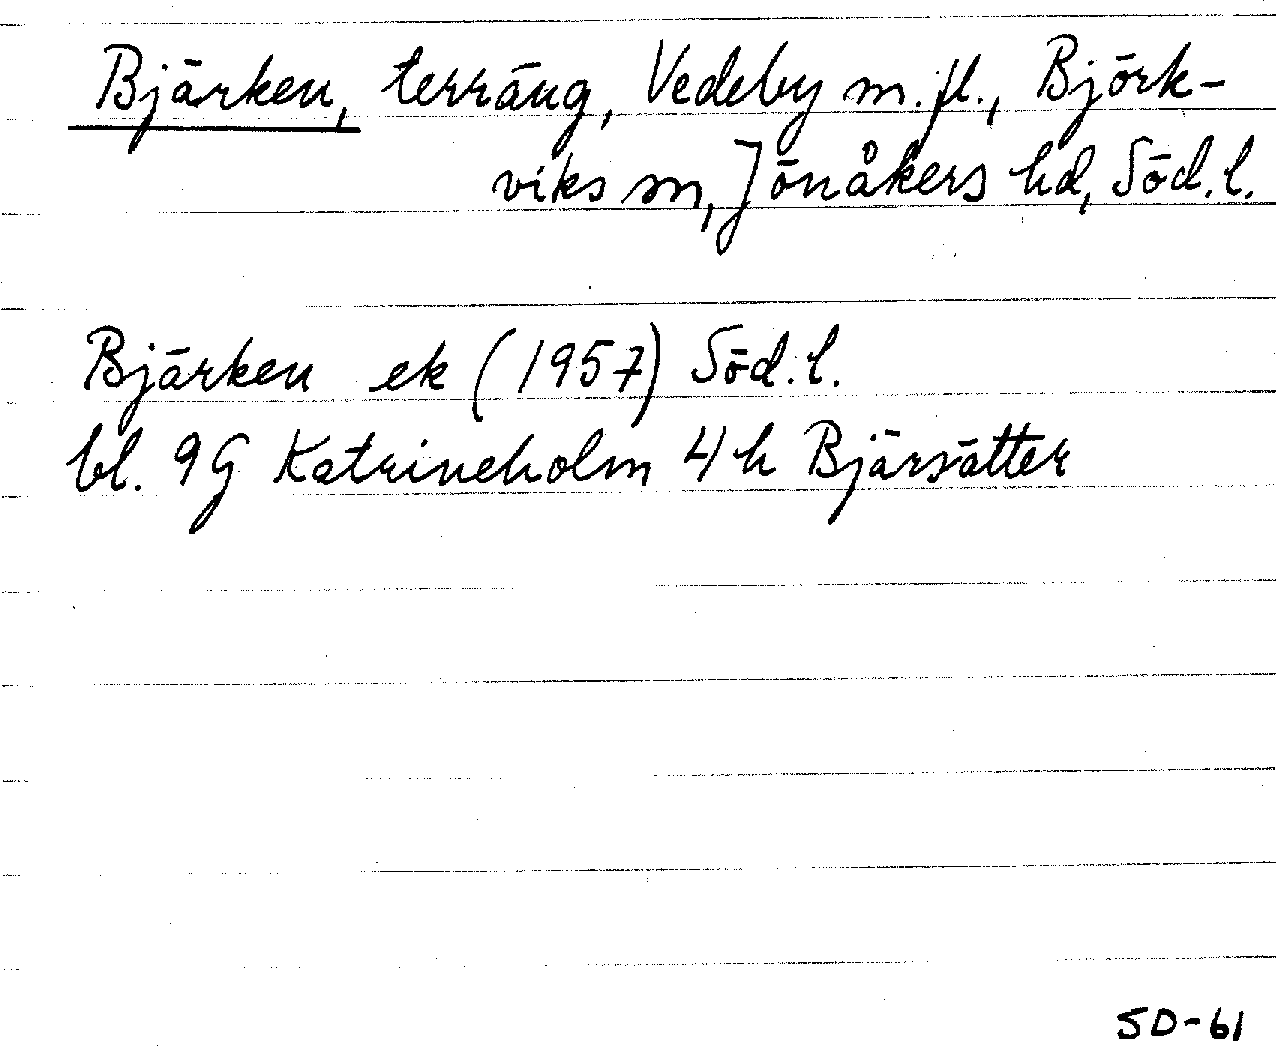 Bjärken, terräng, Vedeby m.fl., Björk-
viks sn, Jönåkers hd, Söd.l.
Bjärken ek (1957) Söd.l.
bl. 9G Katrineholm 4h Bjärsätter
SD-61